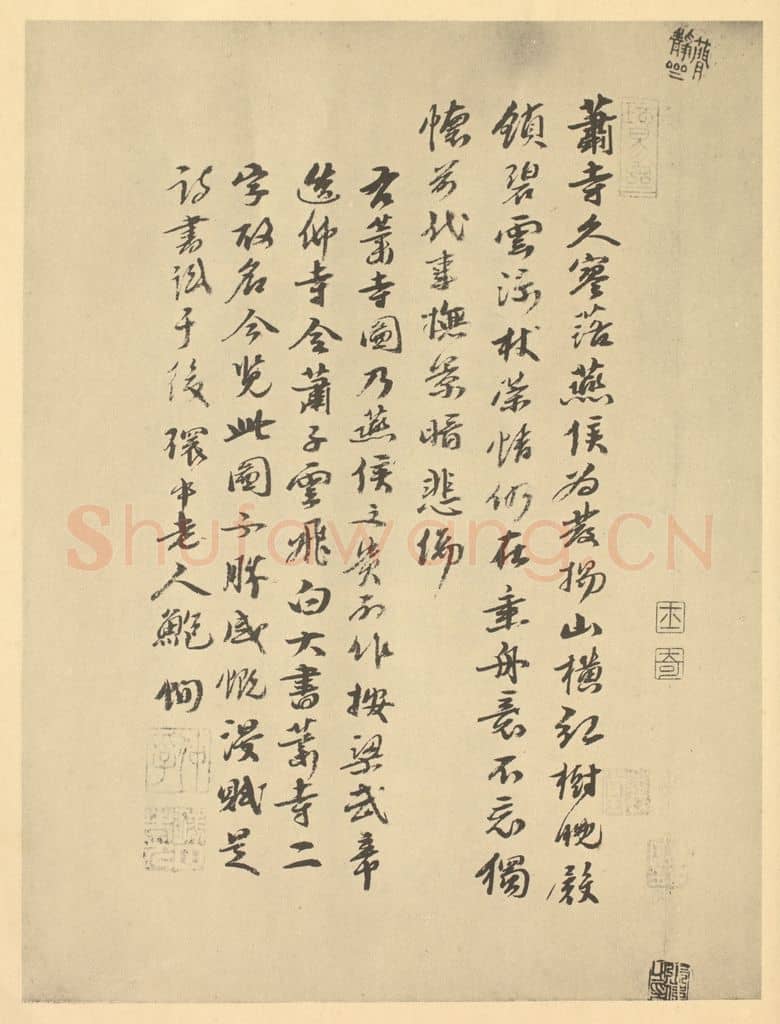 蕭寺久寥落燕侯為發揚山橫紅樹晚殿
鎖碧雲涼杖策情仍在乘舟意不忘獨
懷前代事撫景暗悲傷
右蕭寺圖乃燕侯文貴所作按梁武帝
造佛寺令蕭子雲飛白大書蕭寺二
字故名今覽此圖不勝感慨漫賦是
詩書識于後環中老人鮑恂
Shufawang.CN